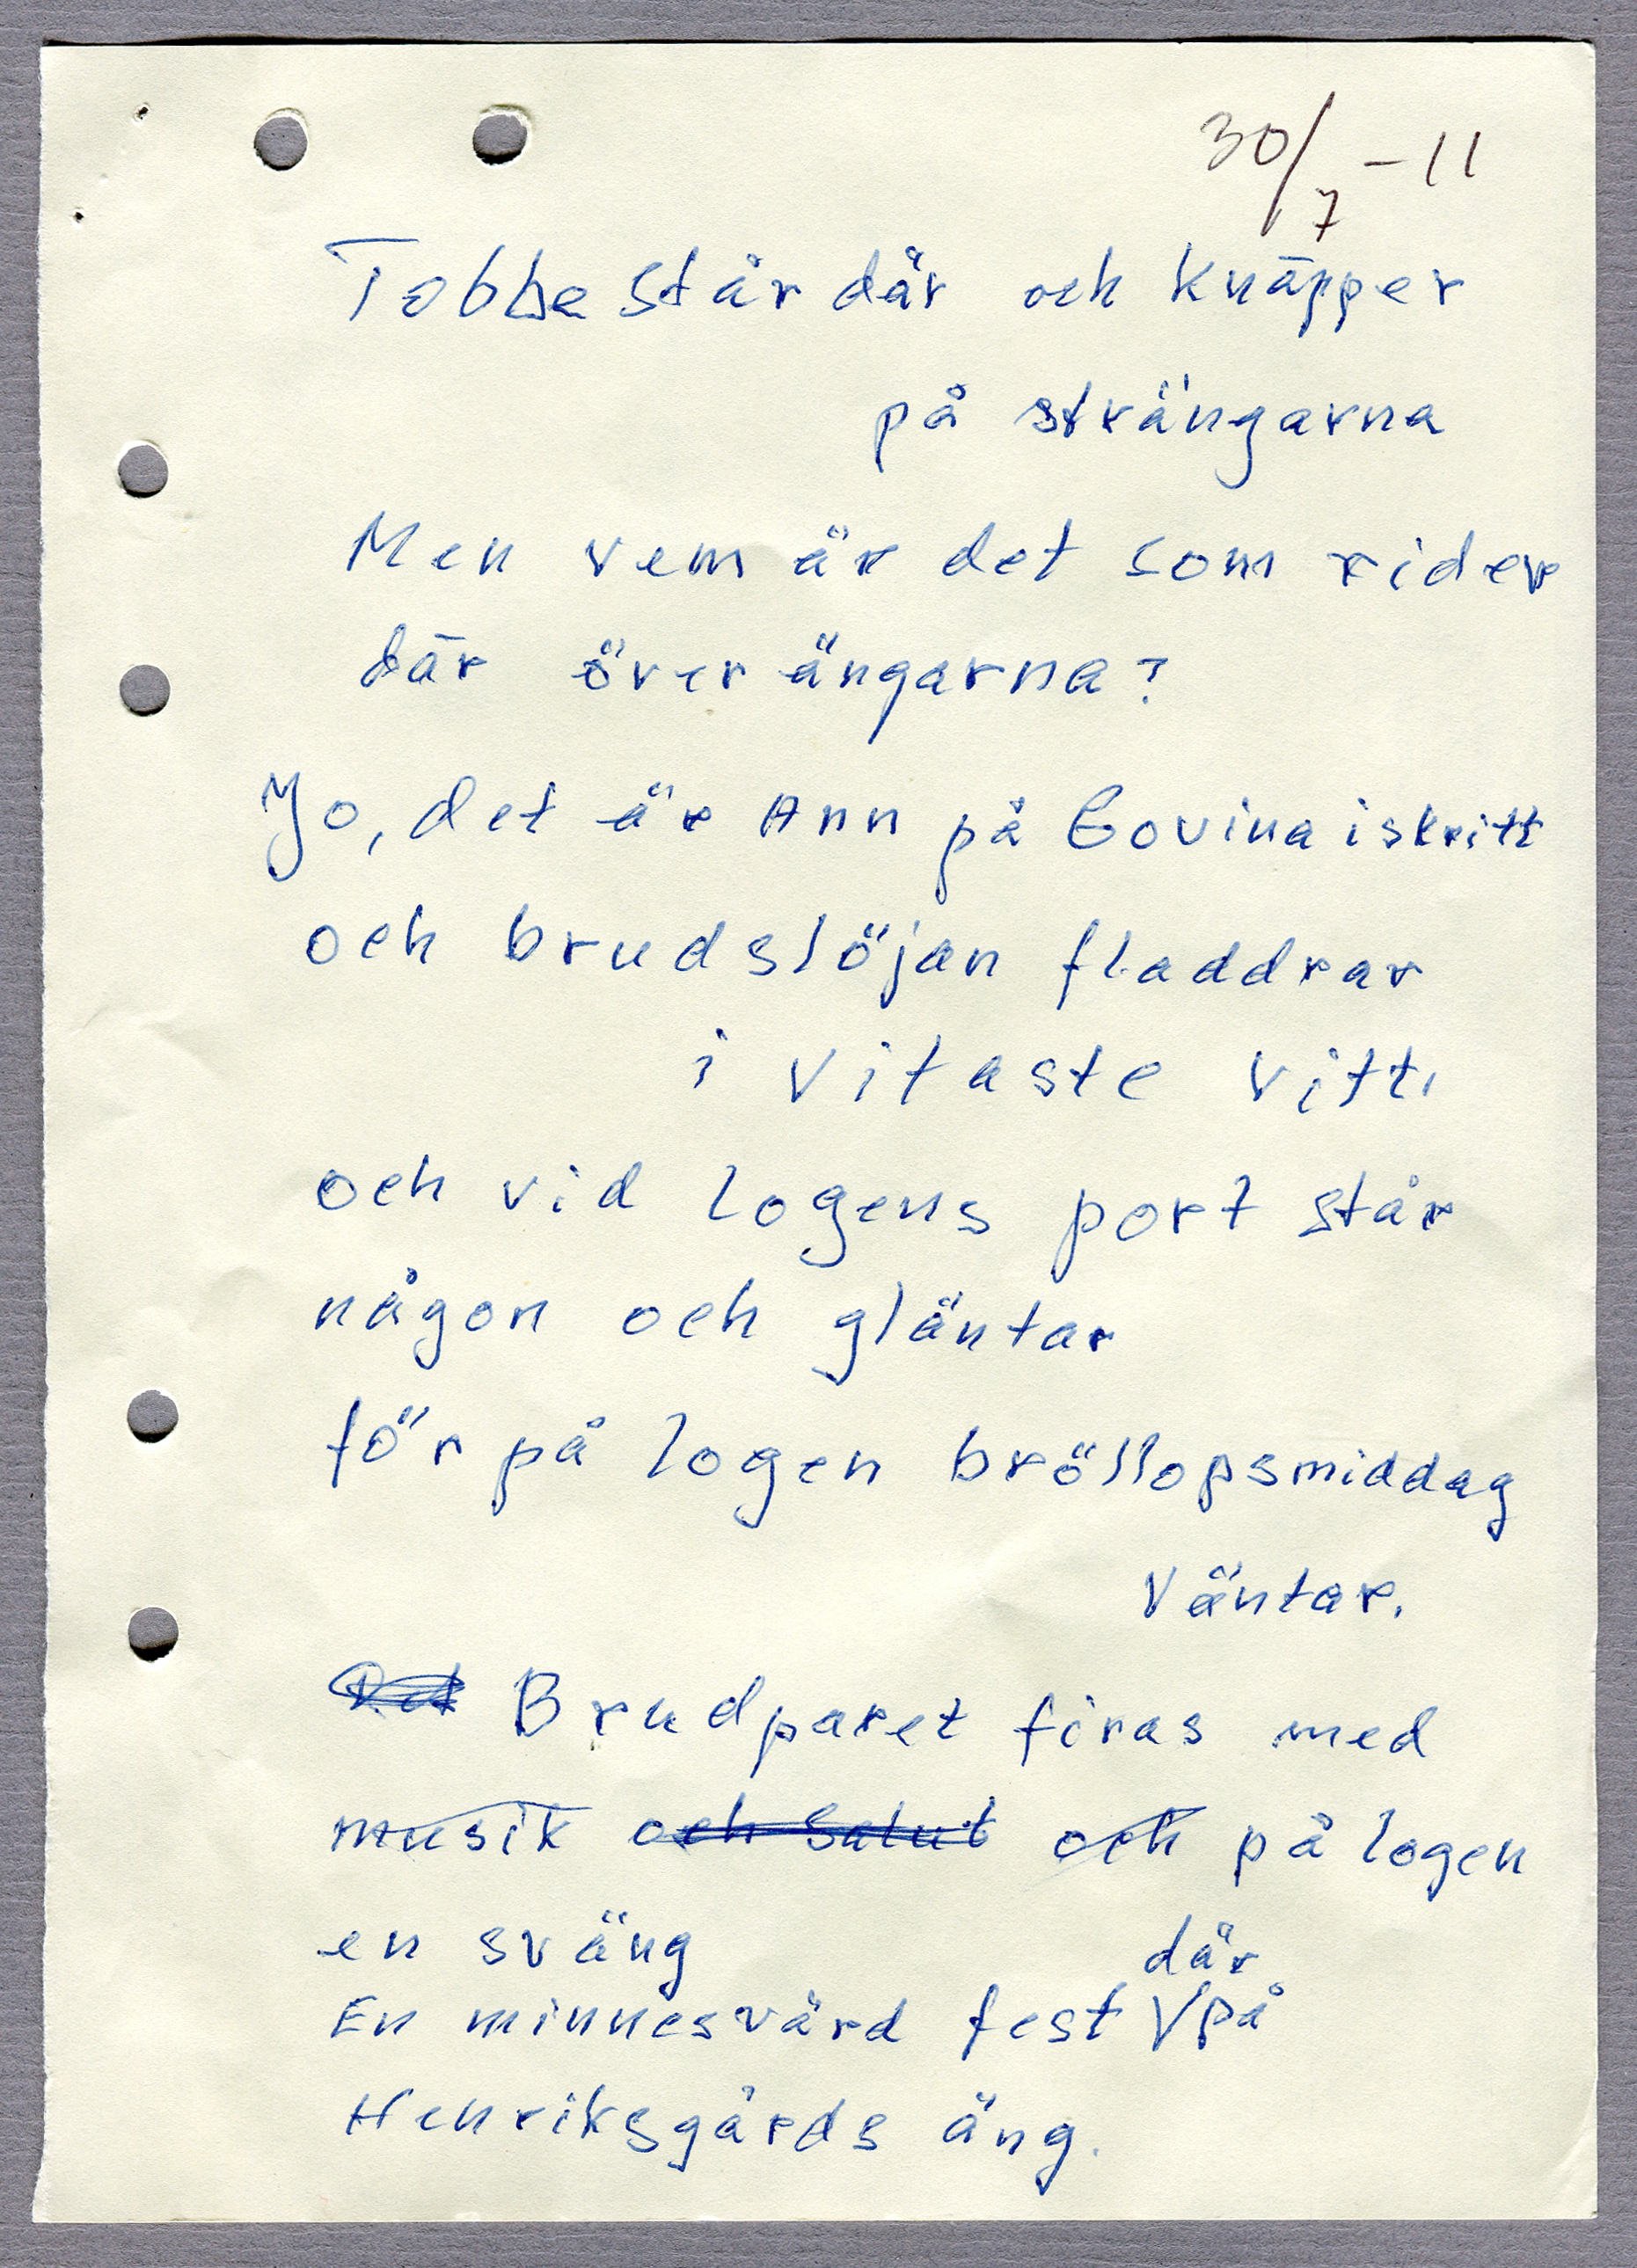 30/7 -11
Tobbe står där och knäpper
på strängarna
Men vem är det som rider
där över ängarna?
Jo, det är Ann på Govina i skritt
och brudslöjan fladdrar
i vitaste vitt.
och vid logens port står
någon och gläntar
för på logen bröllopsmiddag
väntar.
Brudparet firas med
musik och salut och på logen
en sväng
där
En minnesvärd fest V på
Henriksgårds äng.